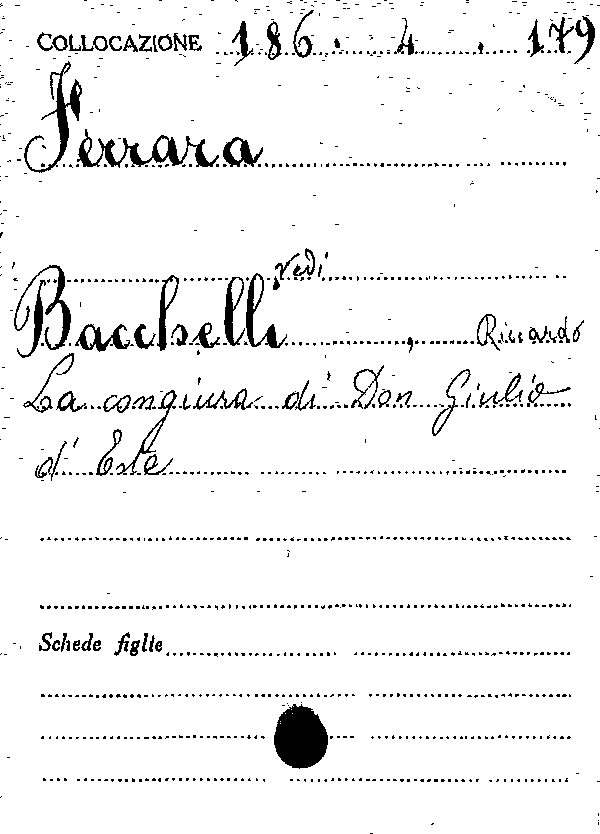 COLLOCAZIONE 186. 4. 179
Ferrara
vedi
Bacchelli, Riccardo
La congiura di Don Giulio
d'Este
Schede figlie